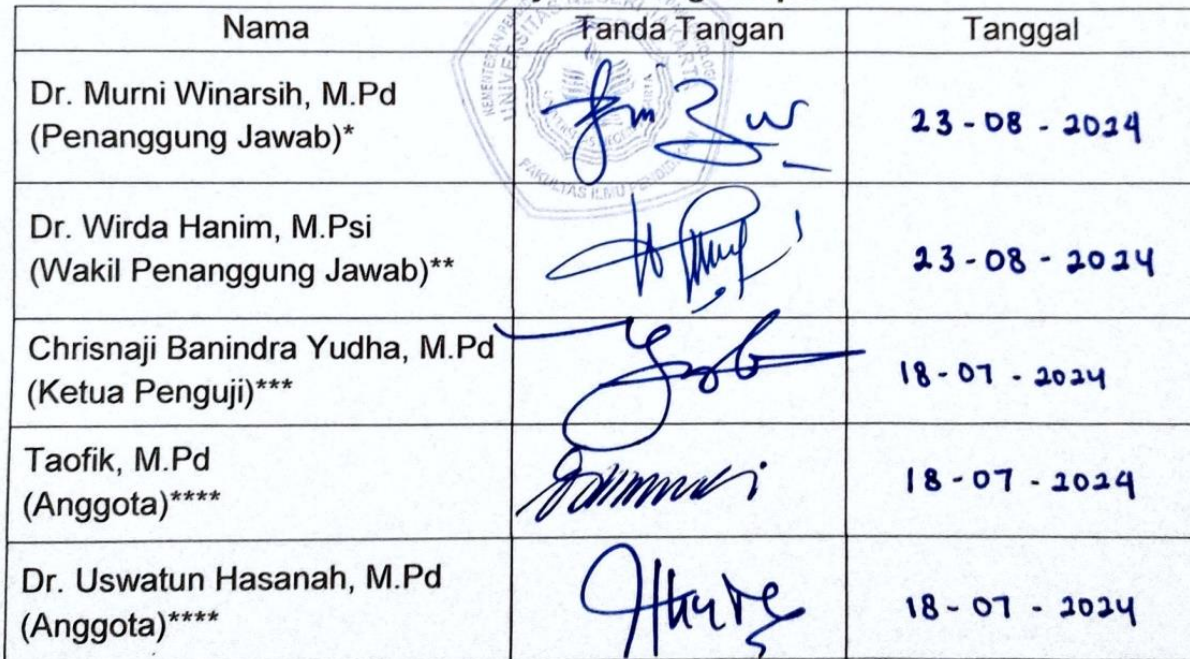 Nama Tanda Tangan Tanggal
Dr. Murni Winarsih, M.Pd
(Penanggung Jawab)* 23-08-2024
Dr. Wirda Hanim, M.Psi
(Wakil Penanggung Jawab)** 23-08-2024
Chrisnaji Banindra Yudha, M.Pd
(Ketua Penguji)*** 18-07-2024
Taofik, M.Pd
(Anggota)**** 18-07-2024
Dr. Uswatun Hasanah, M.Pd
(Anggota)**** 18-07-2024
FAKULTAS ILMU PENDIDIKAN